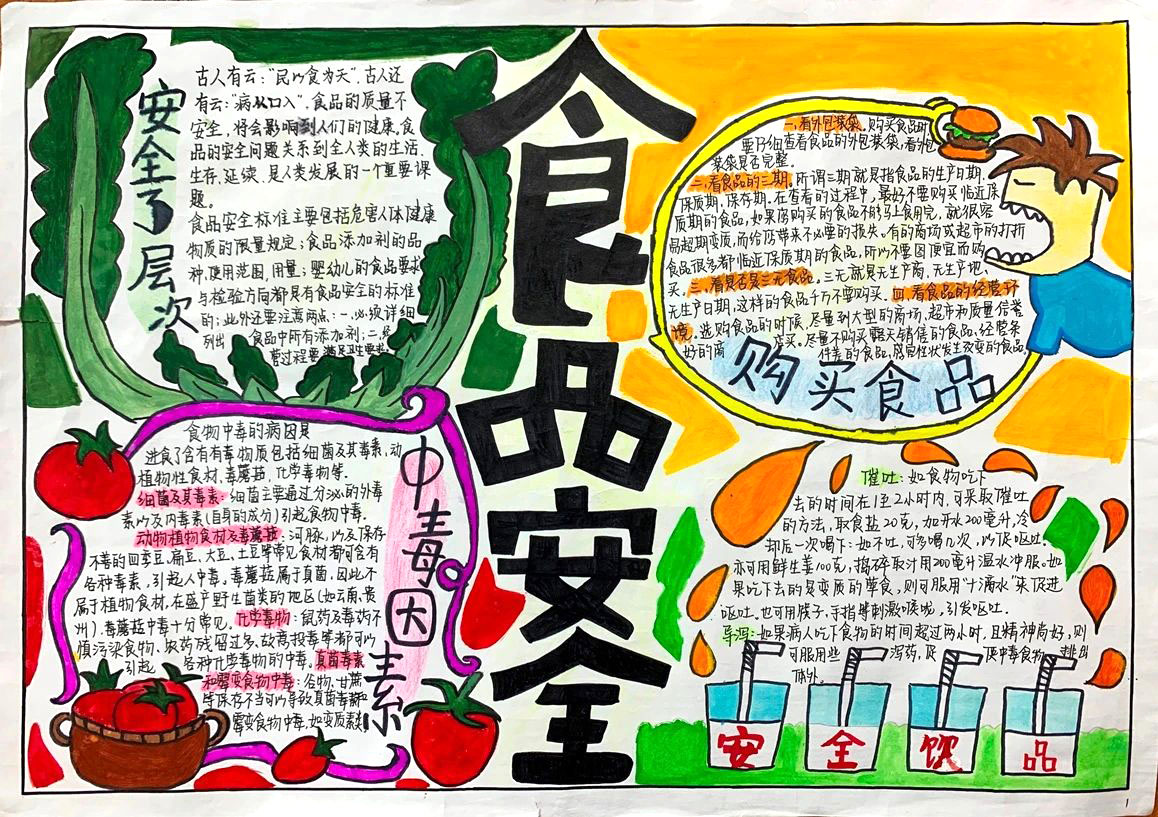 食品安全
安全了层次
古人有云:“民以食为天”,古人还
有云:“病从口入”,食品的质量不
安全,将会影响到人们的健康,食
品的安全问题关系到全人类的生活、
生存、延续、是人类发展的一个重要课
题。
食品安全标准主要包括危害人体健康
物质的限量规定;食品添加剂的品
种、使用范围、用量;婴幼儿的食品要求
与检验方向都具有食品安全的标准
的;此外还要注意两点:一、必须详细
列出 食品中所有添加剂;二、
营过程要满足卫生要求
购买食品
一、看外包装袋。购买食品时
要仔细查看食品的外包装袋,看外包
装袋是否完整。
二、看食品的三期。所谓三期就是指食品的生产日期、
保质期、保存期。在查看的过程中,最好不要购买临近保
质期的食品,如果您购买的食品不能马上食用完,就很容
易超期变质,而给您带来不必要的损失。有的商场或超市的打折
食品很多都临近保质期的食品,所以不要因便宜而购
买。三、看是否是三无食品。三无就是无生产商、无生产地、
无生产日期,这样的食品千万不要购买。四、看食品的经营环
境。选购食品的时候,尽量到大型的商场、超市和质量信誉
好的商 店买。尽量不购买露天销售的食品、经营条
件差的食品、感官性状发生改变的食品。
中毒因素
食物中毒的病因是
进食了含有有毒物质包括细菌及其毒素,动
植物性食材、毒蘑菇,化学毒物等。
细菌及其毒素:细菌主要通过分泌的外毒
素以及内毒素(自身的成分)引起食物中毒。
动物植物食材及毒蘑菇:河豚,以及保存
不善的四季豆、扁豆、大豆、土豆等常见食材都可含有
各种毒素,引起人中毒,毒蘑菇属于真菌,因此不
属于植物食材,在盛产野生菌类的地区(如云南、贵
州),毒蘑菇中毒十分常见。化学毒物:鼠药及毒药不
慎污染食物、农药残留过多、故意投毒等都可以
引起 各种化学毒物的中毒,真菌毒素
和霉变食物中毒:谷物、甘蔗
等保存不当可以导致真菌毒素和
霉变食物中毒,如变质
催吐:如食物吃下
去的时间在1至2小时内,可采取催吐
的方法,取食盐20克,加开水200毫升,冷
却后一次喝下;如不吐,可多喝几次,以促呕吐。
亦可用鲜生姜100克,捣碎取汁用200毫升温水冲服。如
果吃下去的是变质的荤食,则可服用“十滴水”来促进
呕吐。也可用筷子、手指等刺激喉咙,引发呕吐。
导泻:如果病人吃下食物的时间超过两小时,且精神尚好,则
可服用些 泻药,促 使中毒食物 排出
体外。
安全饮品